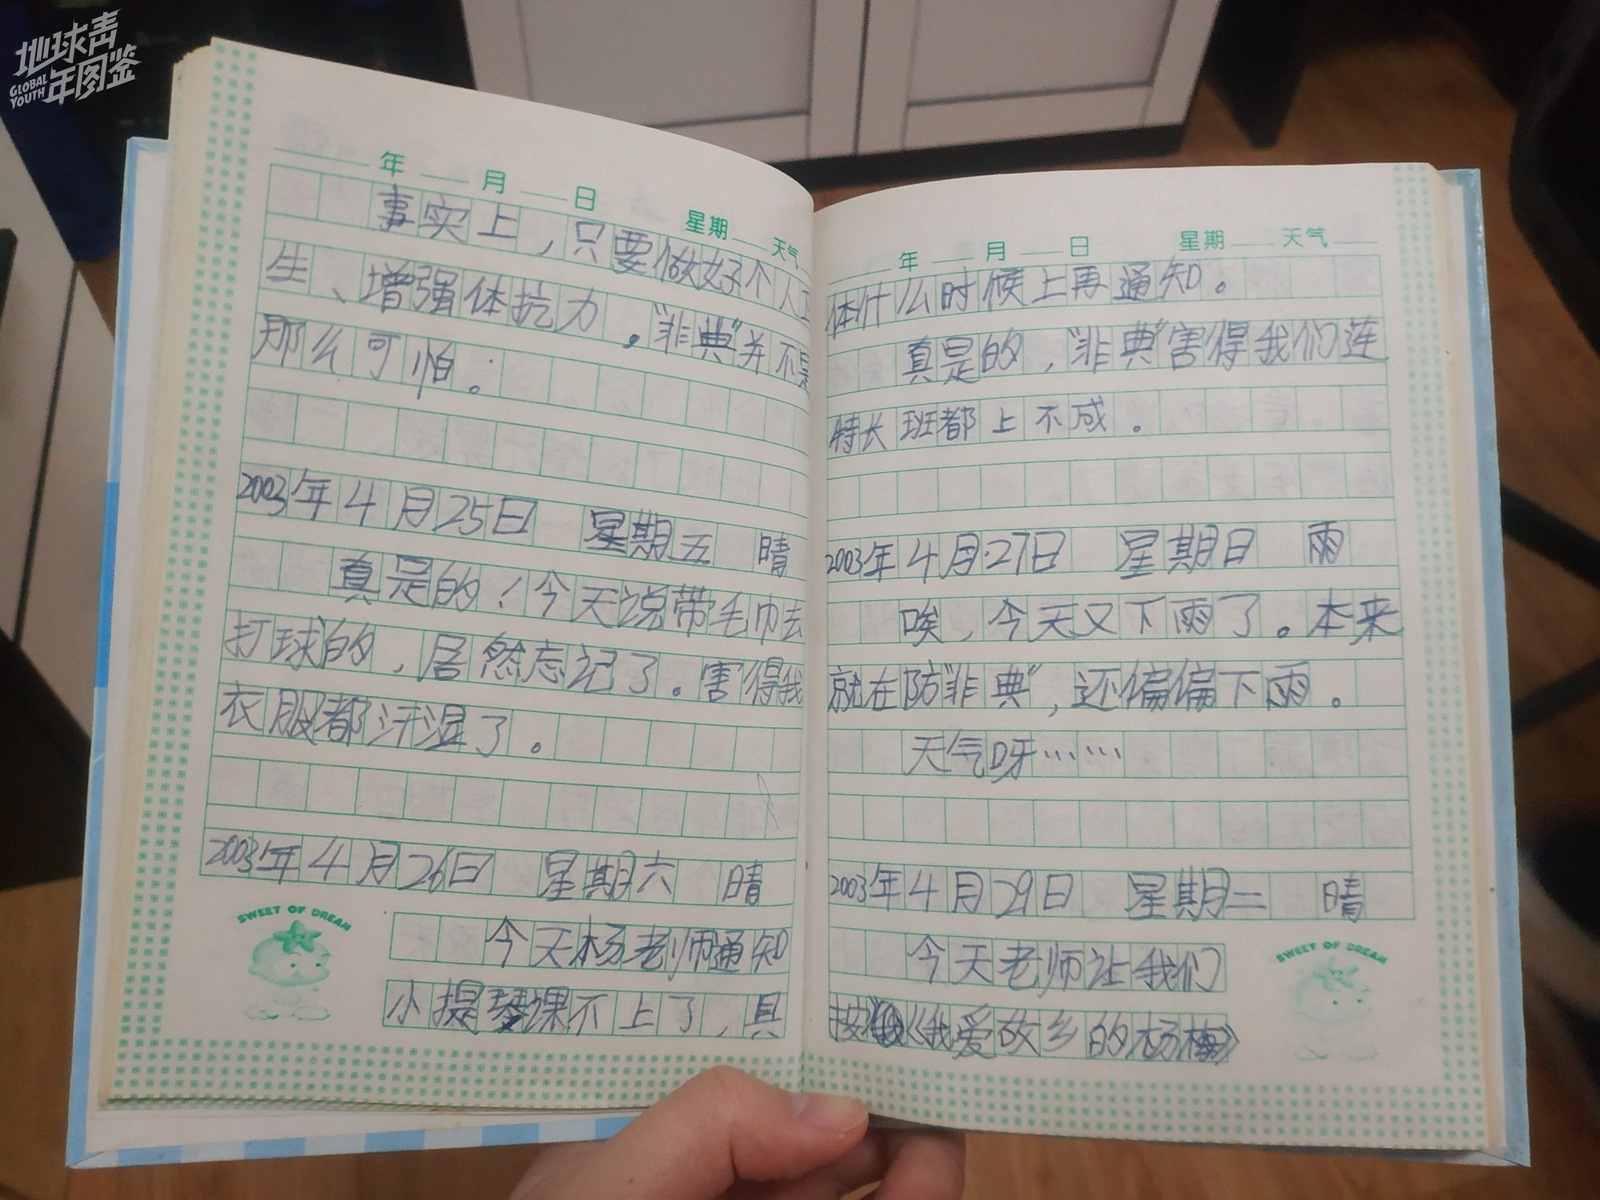 地球青
年图鉴
GLOBAL
YOUTH
年 月 日 星期 天气
事实上，只要做好个人卫
生、增强体抗力。“非典”并不是
那么可怕。
2003年4月25日 星期五 晴
真是的！今天说带毛巾去
打球的，居然忘记了。害得我
衣服都汗湿了。
2003年4月26日 星期六 晴
SWEET OF DREAM
今天杨老师通知
小提琴课不上了，具
年 月 日 星期 天气
体什么时候上再通知。
真是的，“非典”害得我们连
特长班都上不成。
2003年4月27日 星期日 雨
唉，今天又下雨了。本来
就在防“非典”，还偏偏下雨。
天气呀……
2003年4月29日 星期二 晴
今天老师让我们
按《我爱故乡的杨梅》
SWEET OF DREAM